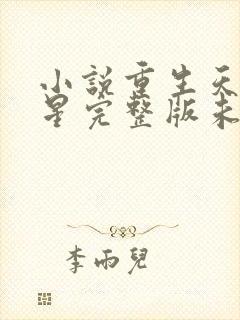 小說重生天
星完整版未
李雨兒